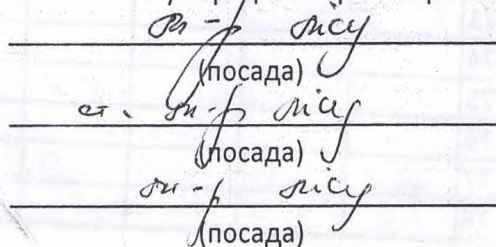 м-р лісу
(посада)
ст. м-р лісу
(посада)
м-р лісу
(посада)